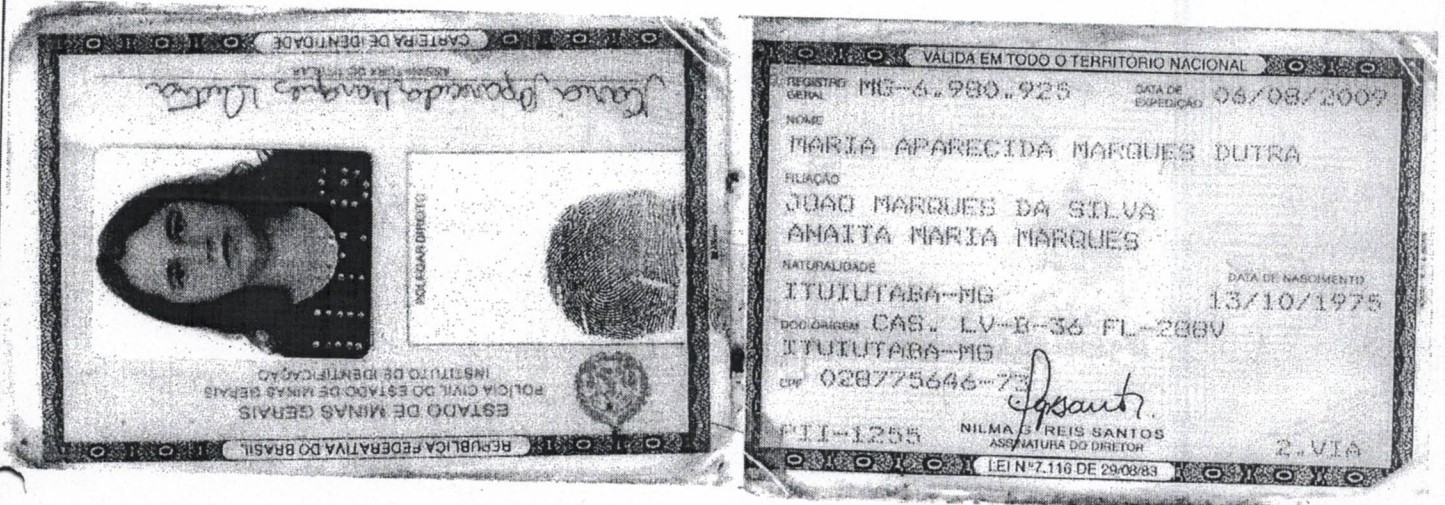 REPÚBLICA FEDERATIVA DO BRASIL
ESTADO DE MINAS GERAIS
POLÍCIA CIVIL DO ESTADO DE MINAS GERAIS
INSTITUTO DE IDENTIFICAÇÃO
POLEGAR DIREITO
Maria Aparecida Marques Dutra
ASSINATURA DO TITULAR
CARTEIRA DE IDENTIDADE
VÁLIDA EM TODO O TERRITÓRIO NACIONAL
REGISTRO GERAL MG-6.980.925 DATA DE EXPEDIÇÃO 06/08/2009
NOME
MARIA APARECIDA MARQUES DUTRA
FILIAÇÃO
JOAO MARQUES DA SILVA
ANAITA MARIA MARQUES
NATURALIDADE DATA DE NASCIMENTO
ITUIUTABA-MG 13/10/1975
DOC ORIGEM CAS. LV-B-36 FL-288V
ITUIUTABA-MG
CPF 028775646-73
PII-1255 NILMA S REIS SANTOS
ASSINATURA DO DIRETOR 2.VIA
LEI Nº 7.116 DE 29/08/83